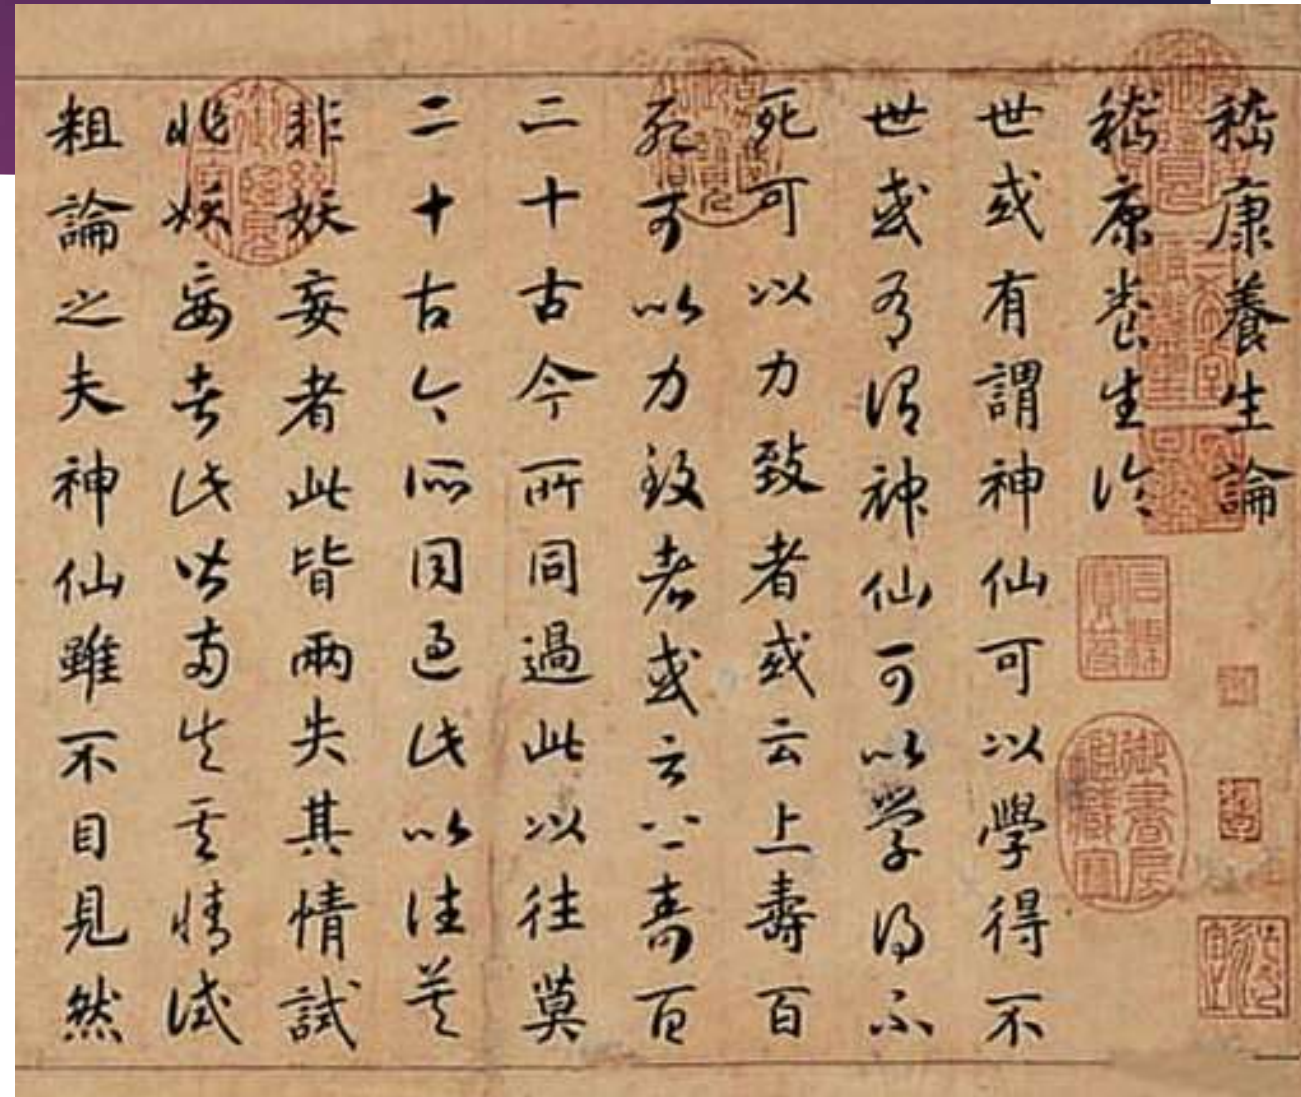 嵇康養生論
嵇康養生論
世或有謂神仙可以學得不
世或有謂神仙可以學得不
死可以力致者或云上壽百
死可以力致者或云上壽百
二十古今所同過此以往莫
二十古今所同過此以往莫
非妖妄者此皆兩失其情試
非妖妄者此皆兩失其情試
粗論之夫神仙雖不目見然
御書房鑑藏寶